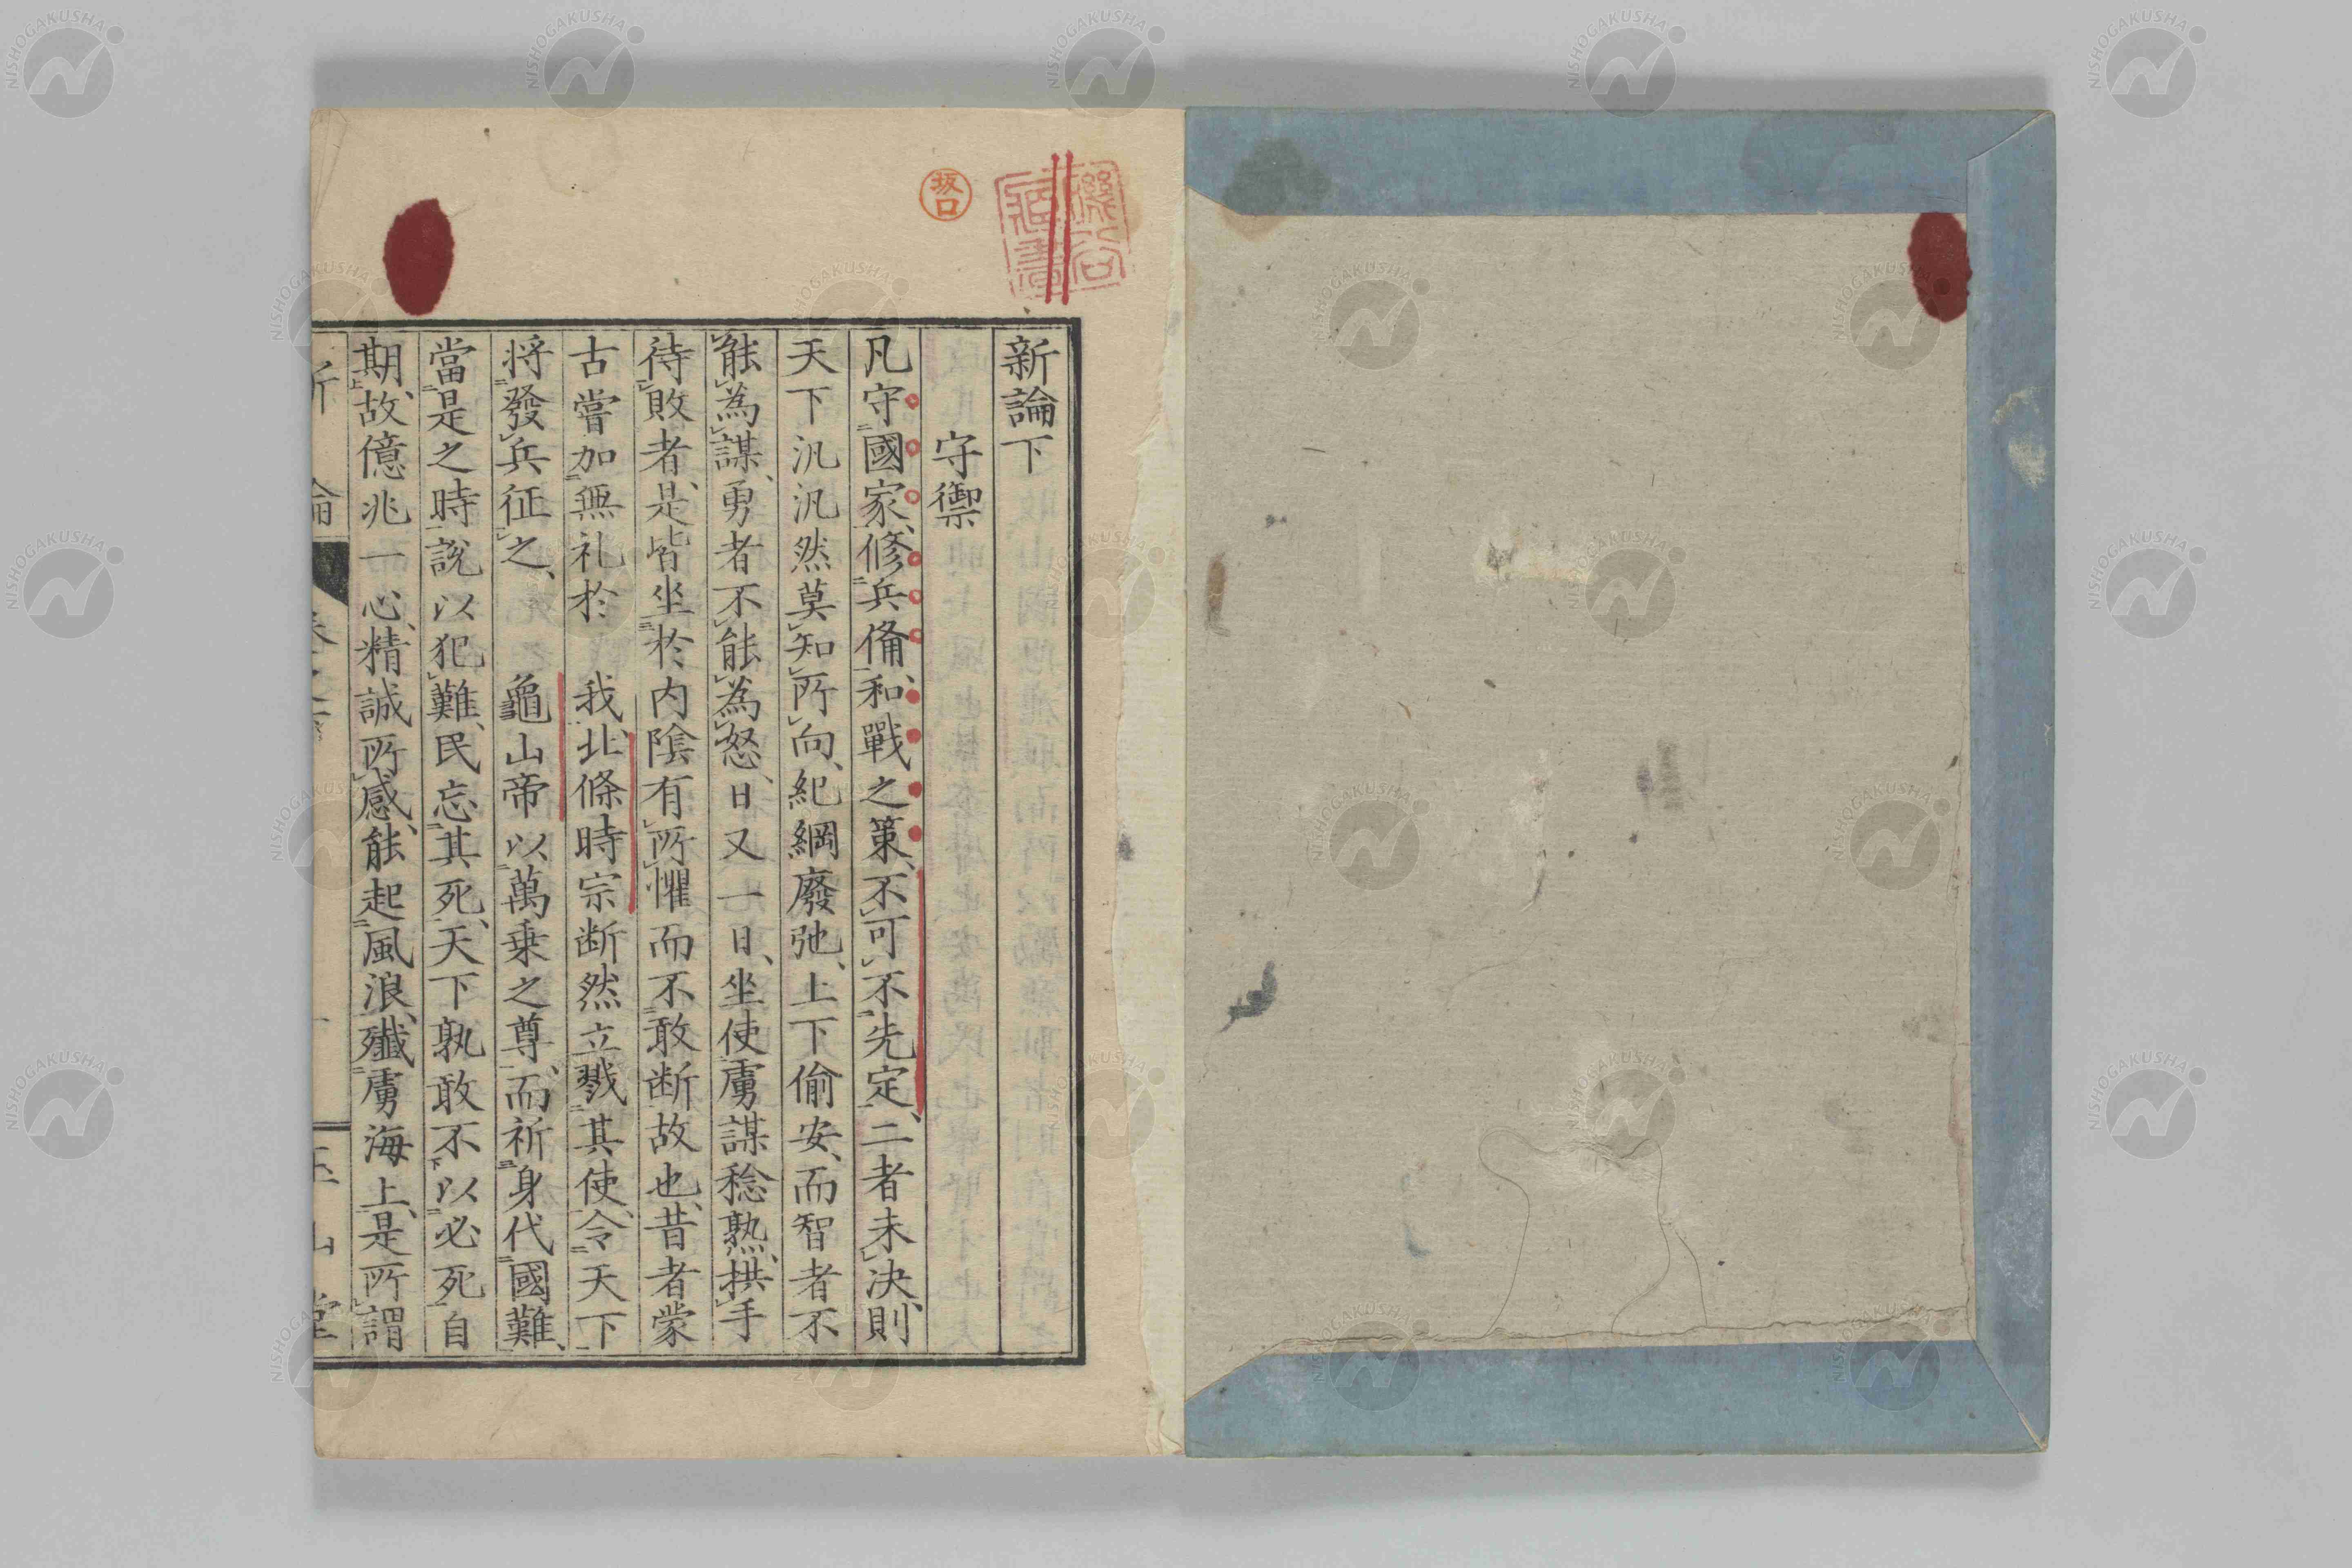 新論下
守禦
凡守國家、修兵備、和戰之策、不可不先定、二者未決、則
天下汎汎然莫知所向、紀綱廢弛、上下偷安、而智者不
能為謀、勇者不能為怒、日又一日、坐使虜謀稔熟、拱手
待敗者、是皆坐於内陰有所懼而不敢断故也、昔者蒙
古嘗加無礼於　我、北條時宗断然立戮其使、令天下
将發兵征之、　龜山帝以萬乗之尊、而祈身代國難、
當是之時、説以犯難、民忘其死、天下孰敢不以必死自
期、故億兆一心、精誠所感、能起風浪、殲虜海上、是所謂
坂口
NISHOGAKUSHA